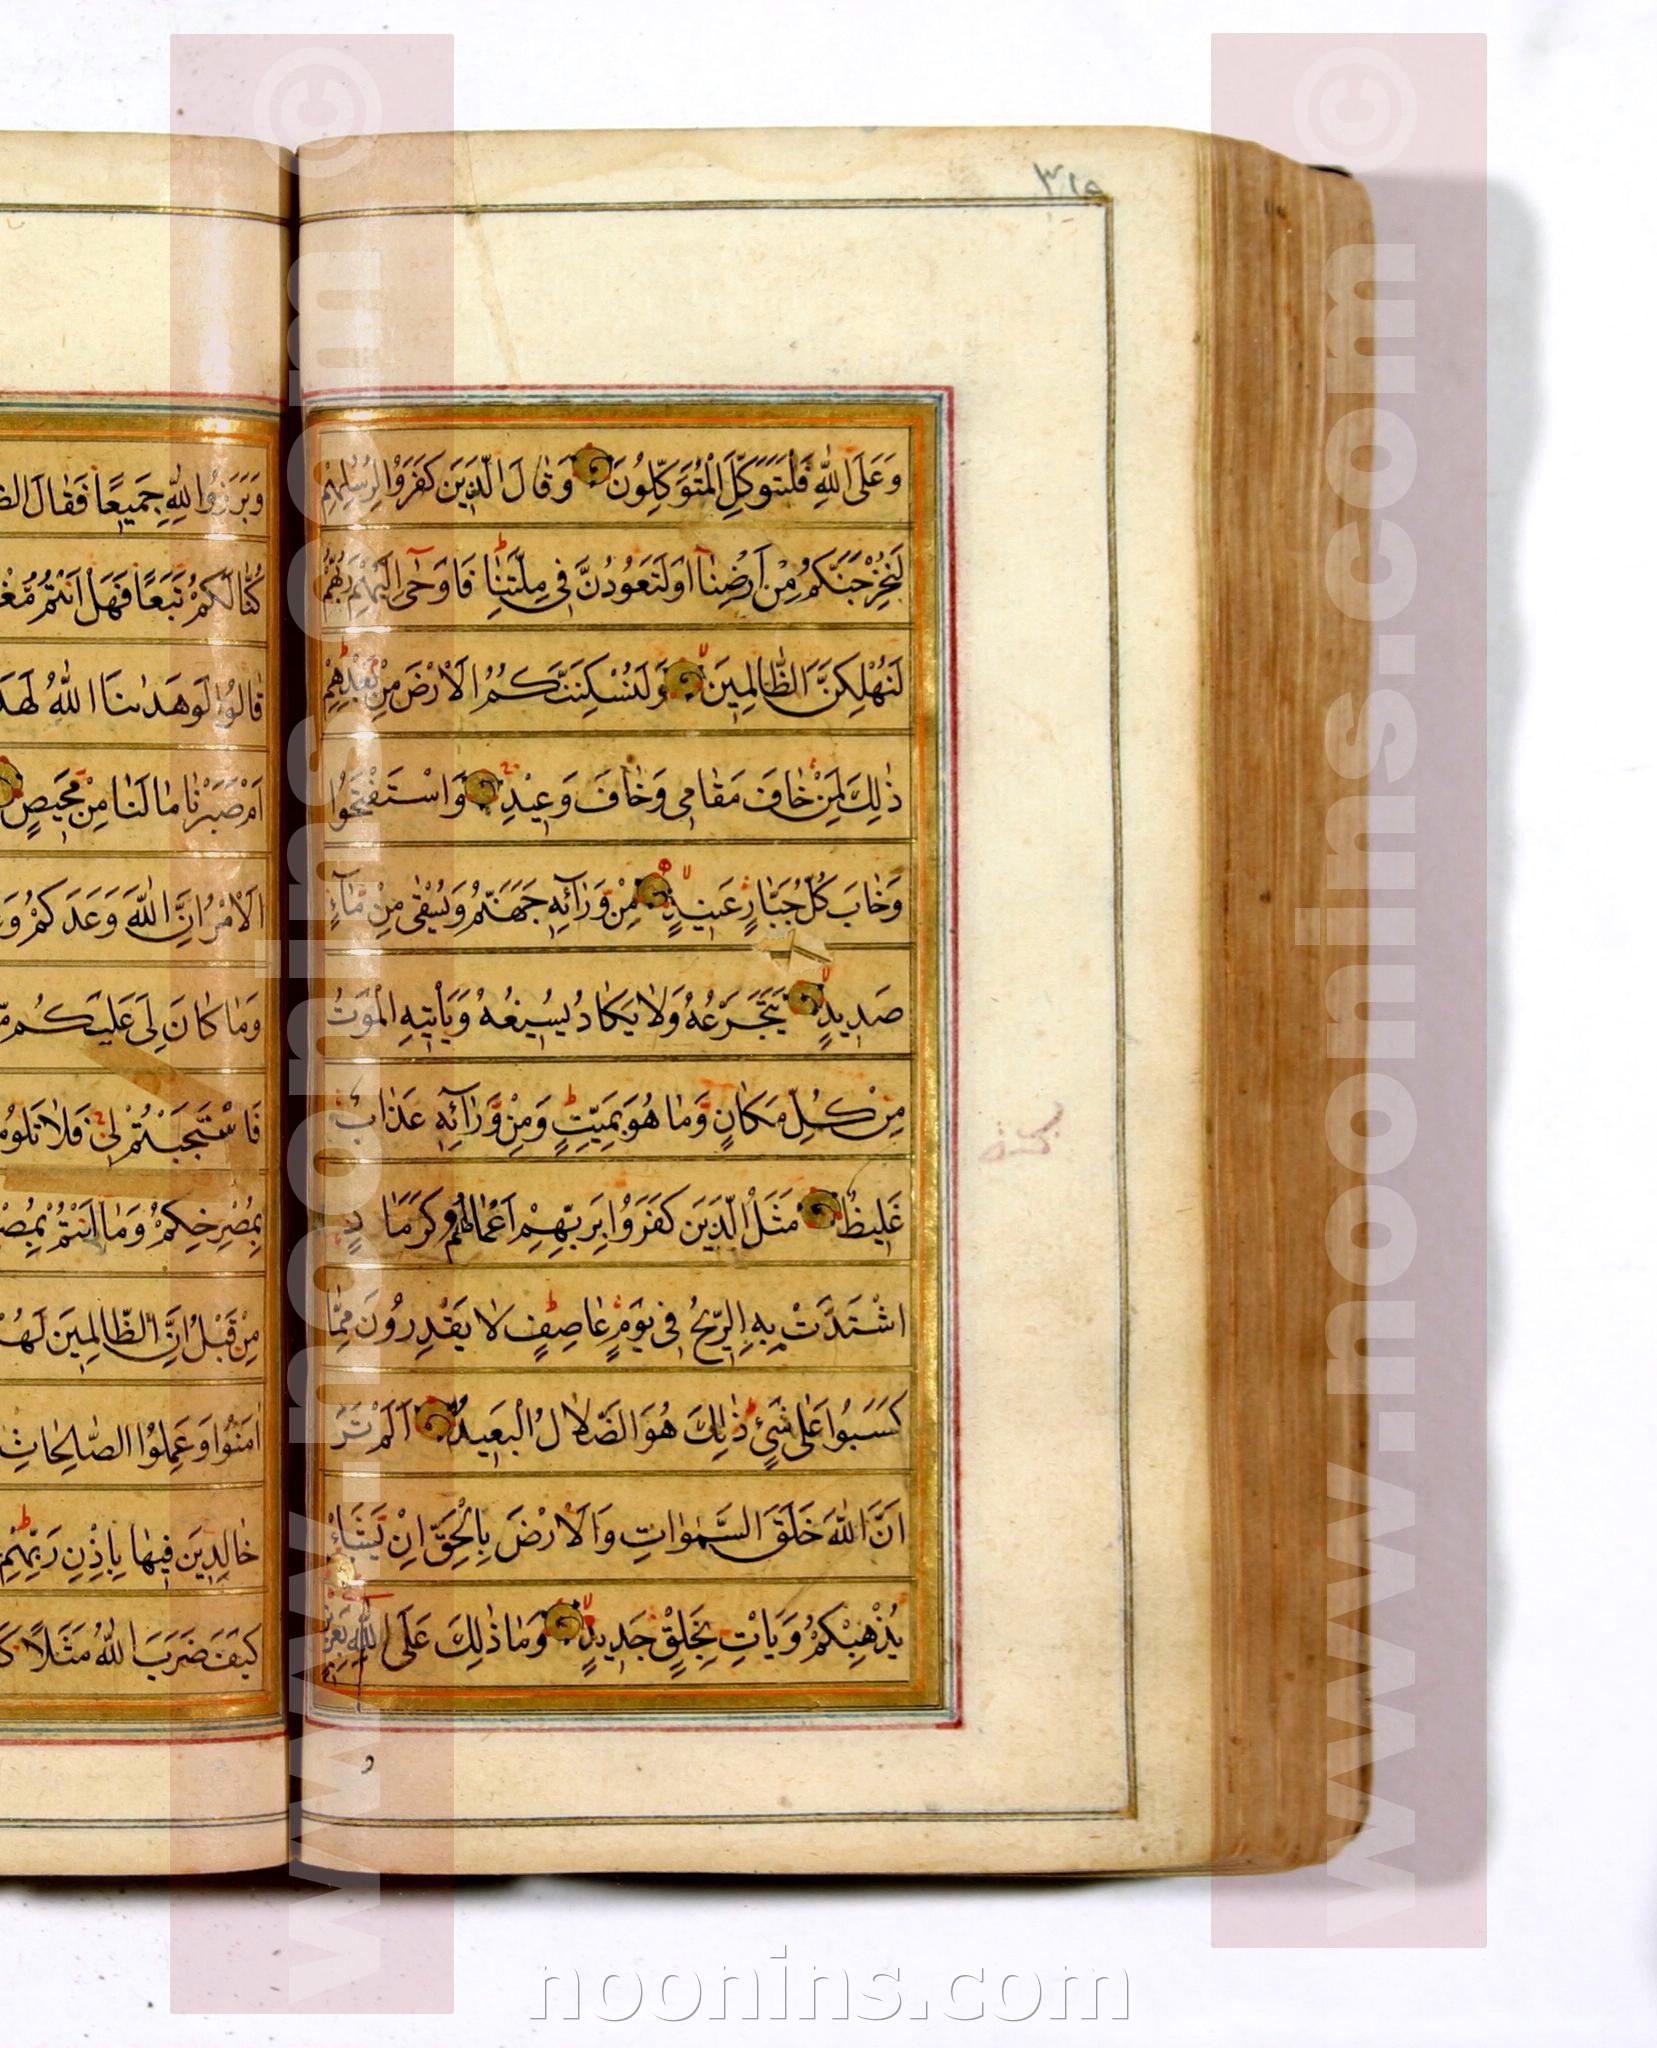 ٣١٥
وَعَلَى اللّٰهِ فَلْيَتَوَكَّلِ الْمُتَوَكِّلُونَ وَقَالَ الَّذِينَ كَفَرُوا لِرُسُلِهِمْ
لَنُخْرِجَنَّكُمْ مِنْ اَرْضِنَا اَوْ لَتَعُودُنَّ فِي مِلَّتِنَا فَاَوْحٰى اِلَيْهِمْ رَبُّهُمْ
لَنُهْلِكَنَّ الظَّالِمِينَ وَلَنُسْكِنَنَّكُمُ الْاَرْضَ مِنْ بَعْدِهِمْ
ذٰلِكَ لِمَنْ خَافَ مَقَامِي وَخَافَ وَعِيدِ وَاسْتَفْتَحُوا
وَخَابَ كُلُّ جَبَّارٍ عَنِيدٍ مِنْ وَرَائِهِ جَهَنَّمُ وَيُسْقٰى مِنْ مَاءٍ
صَدِيدٍ يَتَجَرَّعُهُ وَلَا يَكَادُ يُسِيغُهُ وَيَأْتِيهِ الْمَوْتُ
مِنْ كُلِّ مَكَانٍ وَمَا هُوَ بِمَيِّتٍ وَمِنْ وَرَائِهِ عَذَابٌ
غَلِيظٌ مَثَلُ الَّذِينَ كَفَرُوا بِرَبِّهِمْ اَعْمَالُهُمْ كَرَمَادٍ
اشْتَدَّتْ بِهِ الرِّيحُ فِي يَوْمٍ عَاصِفٍ لَا يَقْدِرُونَ مِمَّا
كَسَبُوا عَلٰى شَيْءٍ ذٰلِكَ هُوَ الضَّلَالُ الْبَعِيدُ اَلَمْ تَرَ
اَنَّ اللّٰهَ خَلَقَ السَّمٰوَاتِ وَالْاَرْضَ بِالْحَقِّ اِنْ يَشَأْ
يُذْهِبْكُمْ وَيَأْتِ بِخَلْقٍ جَدِيدٍ وَمَا ذٰلِكَ عَلَى اللّٰهِ بِعَزِيزٍ
وَبَرَزُوا لِلّٰهِ جَمِيعًا فَقَالَ
كُنَّا لَكُمْ تَبَعًا فَهَلْ اَنْتُمْ
قَالُوا لَوْ هَدٰينَا اللّٰهُ
اَمْ صَبَرْنَا مَا لَنَا مِنْ مَحِيصٍ
الْاَمْرُ اِنَّ اللّٰهَ وَعَدَكُمْ
وَمَا كَانَ لِيَ عَلَيْكُمْ
فَاسْتَجَبْتُمْ لِي فَلَا
بِمُصْرِخِكُمْ وَمَا اَنْتُمْ
مِنْ قَبْلُ اِنَّ الظَّالِمِينَ
اٰمَنُوا وَعَمِلُوا الصَّالِحَاتِ
خَالِدِينَ فِيهَا بِاِذْنِ رَبِّهِمْ
كَيْفَ ضَرَبَ اللّٰهُ مَثَلًا
© www.noonins.com
© www.noonins.com
noonins.com